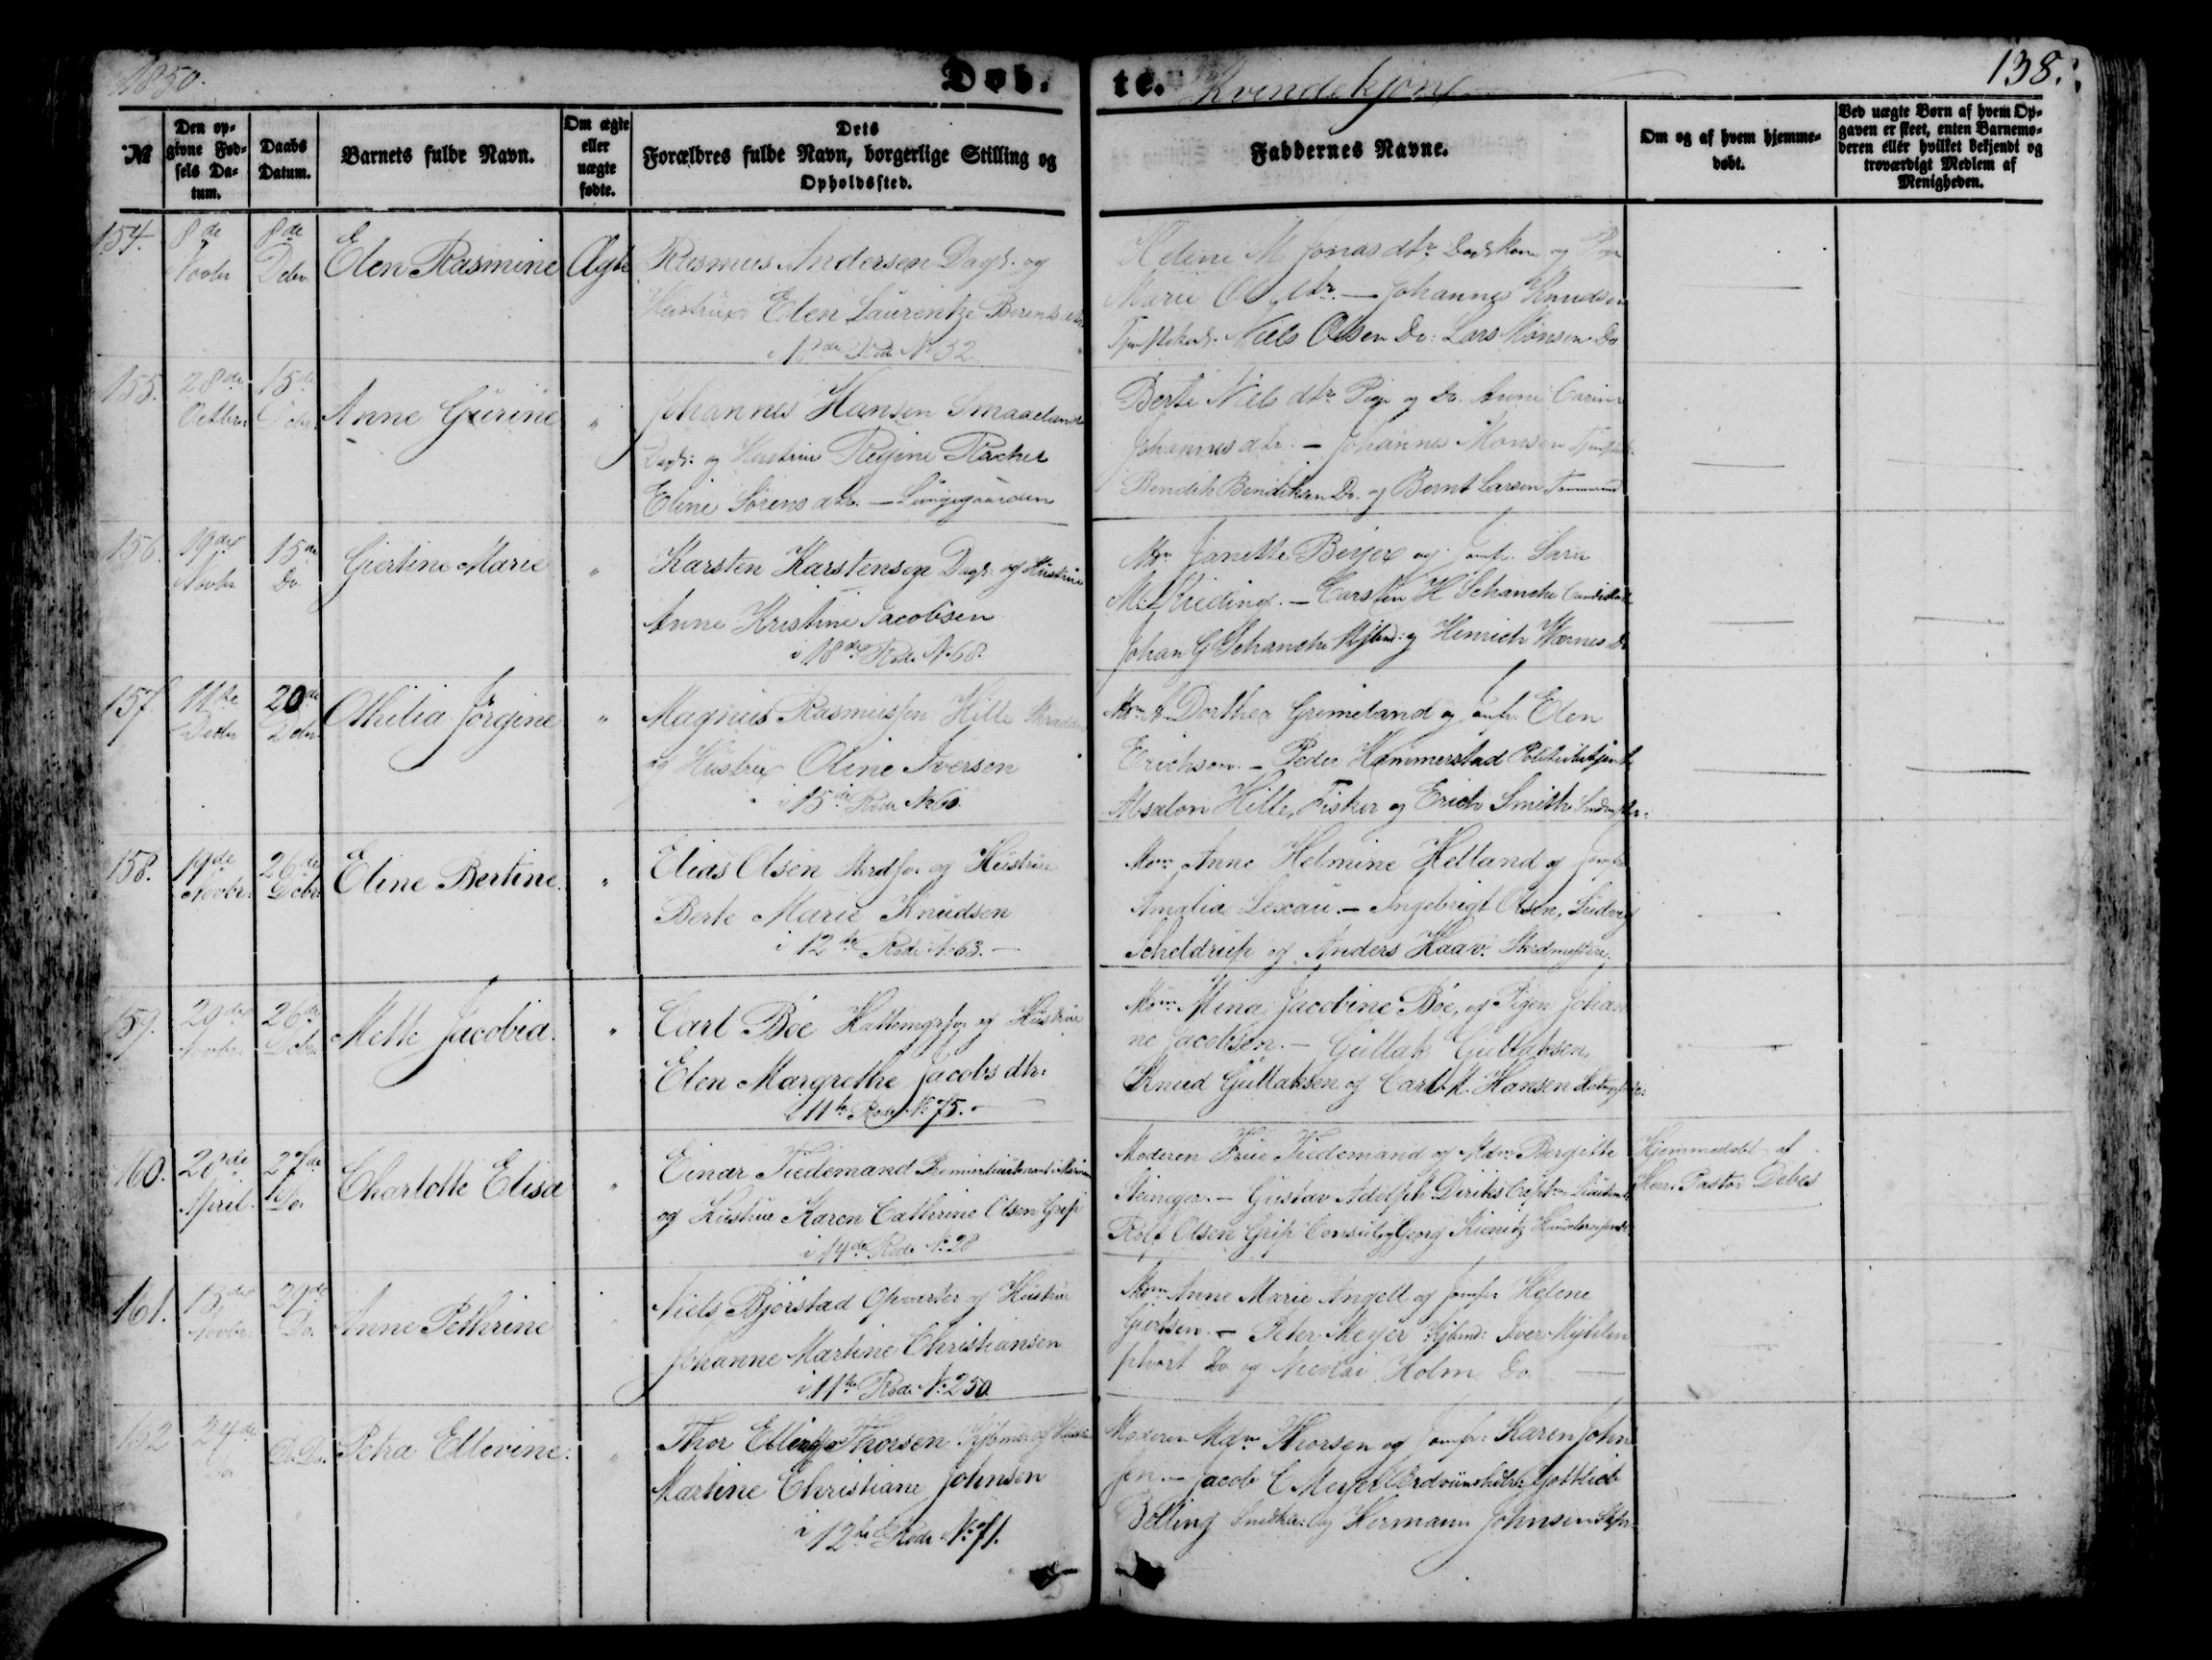 1850.
Døb-
te. Kvindekjøn
138.
№
Den op-
givne Fød-
sels Da-
tum.
Daabs
Datum.
Barnets fulde Navn.
Om ægte
eller
uægte
fødte.
Dets
Forældres fulde Navn, borgerlige Stilling og
Opholdssted.
Faddernes Navne.
Om og af hvem hjemme-
døbt.
Ved uægte Børn af hvem Op-
gaven er skeet, enten Barnemo-
deren eller hvilket bekjendt og
troværdigt Medlem af
Menigheden.
154. 8de Novbr 8de Debr. Elen Rasmine Ægte Rasmus Andersen Dagk. og
Hustrue Elen Laurentze Berents dtr
Rode No 32
Helene M Jonas dtr
Marie dtr. — Johannes Knudsen
Niels Olsen Do: Lars Monsen Do
155. 28de Octbr. 15de Debr. Anne Gurine " Johannes Hansen Smaaland
Dagk. og Hustrue Regine Rachel
Eline Sørens dtr. — Lungegaarden
Berte Niels dtr Pige og Do. Anne Carine
Johannes dtr. — Johannes Monsen
Bendik Bendiksen Do. og Bernt Larsen
156. 19de Novbr 15de Do Giertine Marie " Karsten Karstensen Dagk. og Hustrue
Anne Kristine Jacobsen
i 18de Rode No 68.
Mm Janette Beyer og Jomfr. Sara
M. — Carsten H Schanche Candidat
Johan G Schanche Kjbmd: og Hinrich Wærnes Do
157. 11te Debr 20de Debr. Othilia Jørgine " Magnus Rasmussen Hille
og Hustrue Oline Iversen
i 15de Rode No 60.
Mm Dorthea Grimeland og Jomfr. Elen
Erichson. — Peder Hammerstad Politibetjent
Absalon Hille, Fisker og Erich Smith
158. 19de Novbr. 26de Debr. Eline Bertine. " Elias Olsen Skrdsv. og Hustrue
Berte Marie Knudsen
i 12te Rode No 63. —
Mm Anne Helmine Helland og Jomfr
Amalia Lexau. — Ingebrigt Olsen, Ludvig
Scheldrup og Anders Haav. Skrdmestere.
159. 29de Novbr. 26de Debr. Mette Jacobia. " Carl Böe og Hustrue
Elen Margrethe Jacobs dtr.
i 11te Rode No 75. —
Mm Mina Jacobine Böe, og Pigen Johan
ne Jacobsen. — Gullak Gullaksen,
Knud Gullaksen og Carl M. Hansen
160. 28de April. 27de Do. Charlotte Elisa " Einar Tiedemand Premierlieutenant i Marinen
og Hustrue Karen Cathrine Olsen Grip
i 14de Rode No 28
Moderen Frue Tiedemand og Mdm Bergitte
Steneger. — Gustav Adolph Diriks Capt. Lieutenant
Rolf Olsen Grip Consul og Georg Kienitz
Hjemmedøbt af
Herr Pastor Debes
161. 13de Novbr. 29de Do. Anne Pethrine Niels Bjørstad Opvarter og Hustrue
Johanne Martine Christiansen
i 11te Rode No 250.
Mm Anne Marie Angell og Jomfr Helene
Giertsen. — Peter Meyer Kjbmd: Iver Myhlen
phort Do og Nicolai Holm Do
162 24de Do D. Do. Petra Ellevine. " Thor Thorsen Kjbmd og Hustrue
Martine Christiane Johnsen
i 12te Rode No 71.
Moderen Mdm Thorsen og Jomfr: Karen John
sen. — Jacob C Meyer Gottlieb
Bolling Snedker og Hermann Johnsen